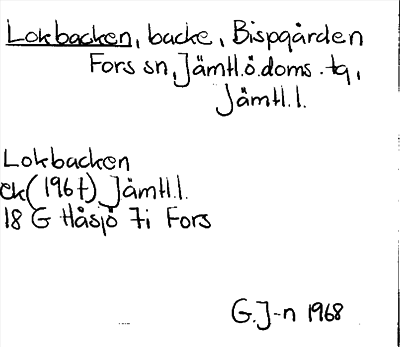 Lokbacken, backe, Bispgården
Fors sn, Jämtl.ö.doms.tg,
Jämtl.l.
Lokbacken
ek(1967) Jämtl.l.
18 G Håsjö 7i Fors
G.J-n 1968